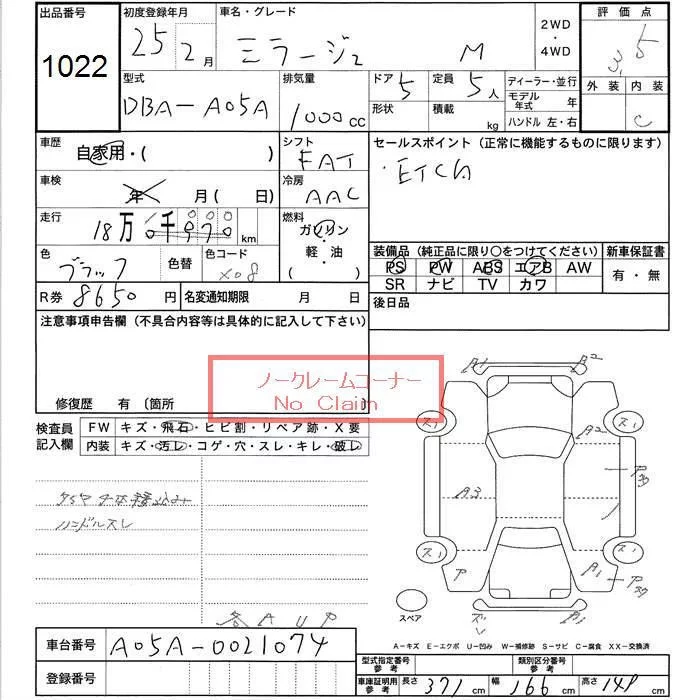 出品番号 初度登録年月 車名・グレード 2WD ・ 4WD 評価点
1022 25 2月 ミラージュ M 3.5
型式 排気量 ドア 5 定員 5人 ディーラー・並行 外装 内装
DBA-A05A 1000cc 形状 積載 kg モデル年式 年 C
ハンドル 左・右
車歴 自家用・( ) シフト FAT セールスポイント (正常に機能するものに限ります)
車検 年 月( 日) 冷房 AAC
走行 18万0千970km 燃料 ガソリン 軽・油 ( )
色 ブラック 色替 色コード X08
装備品 (純正品に限り○をつけてください) 新車保証書
PS PW ABS エアB AW 有・無
SR ナビ TV カワ
R券 8650円 名変通知期限 月 日 後日品
注意事項申告欄 (不具合内容等は具体的に記入して下さい)
ノークレームコーナー
No Claim
修復歴 有 〔箇所 〕
検査員記入欄 FW キズ・飛石・ヒビ割・リペア跡・X要
内装 キズ・汚レ・コゲ・穴・スレ・キレ・破レ
ハンドルスレ
各AUP
A1 A2
A2
A3
P
A1
P1
スペア
A-キズ E-エクボ U-凹み W-補修跡 S-サビ C-腐食 XX-交換済
車台番号 A05A-0021074
登録番号
型式指定番号参考 類別区分番号参考
車庫証明用参考 長さ 371cm 幅 166cm 高さ 149cm